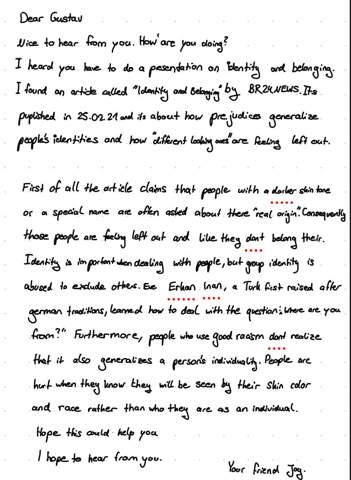 Dear Gustav
Nice to hear from you. How are you doing?
I heard you have to do a pesentation on identity and belonging.
I found an article called "Identity and Belonging" by BR24 NEWS. Its
puplished in 25.02.21 and its about how prejudices generalize
people's identities and how "different looking ones" are feeling left out.
First of all the article claims that people with a darker skin tone
or a special name are often asked about there "real origin". Consequently
those people are feeling left out and like they dont belong their.
Identity is important when dealing with people, but group identity is
abused to exclude others. Eve Erkan Inan, a Turk fist raised after
german traditions, learned how to deal with the question: "where are you
from?" Furthermore, people who use good raaism dont realize
that it also generalizes a person's individuality. People are
hurt when they know they will be seen by their skin color
and race rather than who they are as an individual.
Hope this could help you
I hope to hear from you.
Your friend Joy.